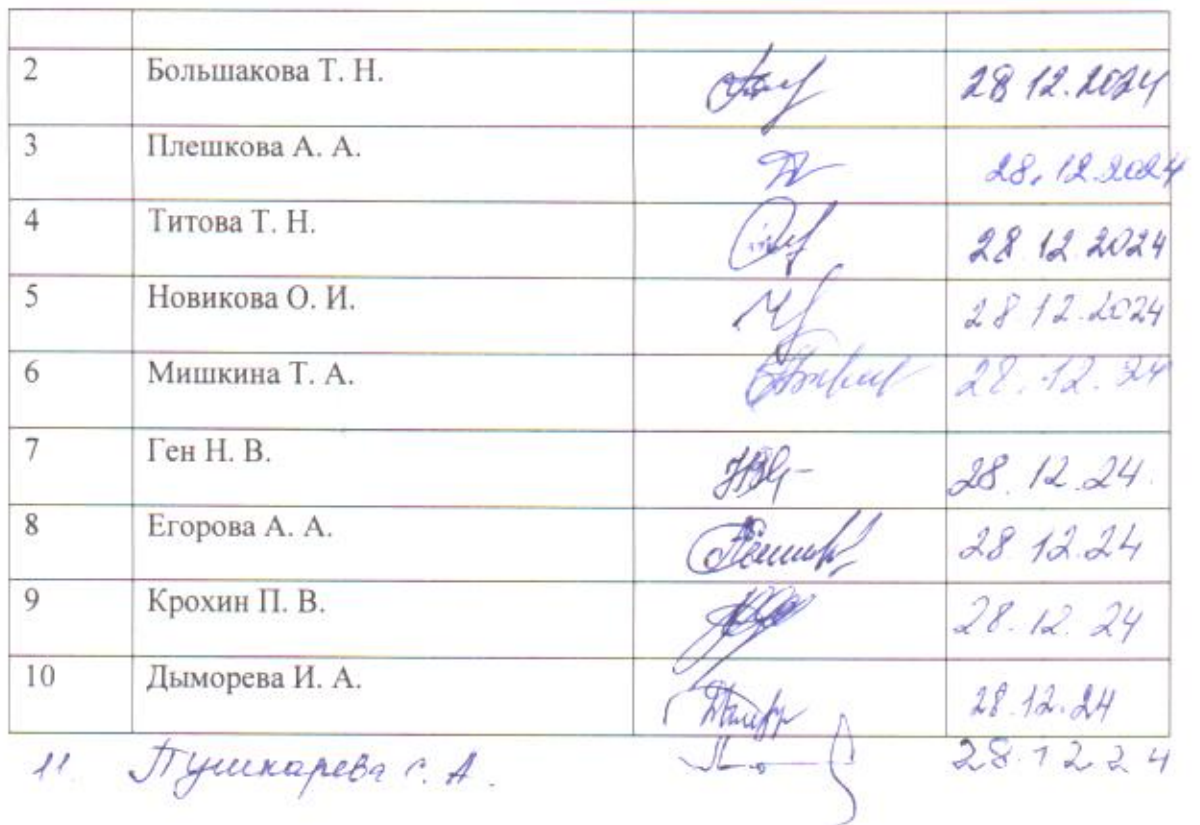 2 Большакова Т. Н. 28.12.2024
3 Плешкова А. А. 28.12.2024
4 Титова Т. Н. 28.12.2024
5 Новикова О. И. 28.12.2024
6 Мишкина Т. А. 28.12.24
7 Ген Н. В. 28.12.24.
8 Егорова А. А. 28.12.24
9 Крохин П. В. 28.12.24
10 Дыморева И. А. 28.12.24
11. Пушкарева С. А. 28.12.24